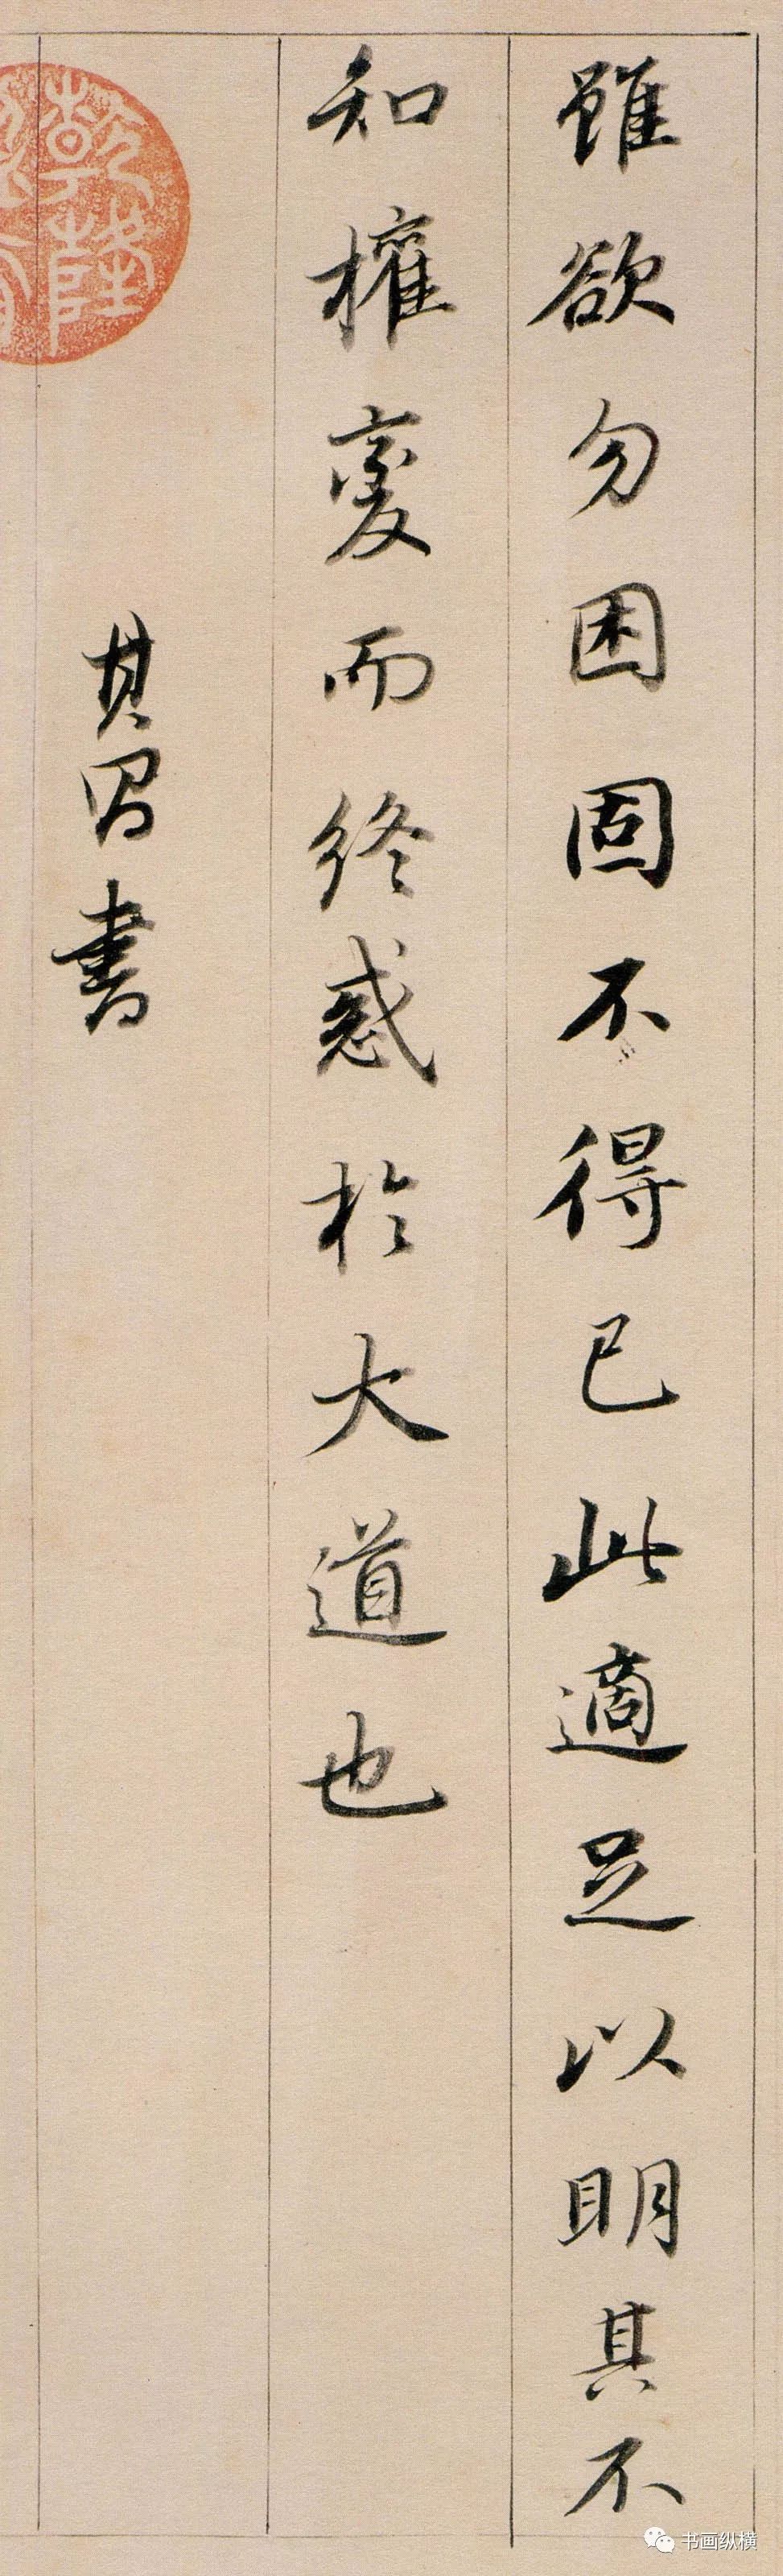 雖欲勿困固不得已此適足以明其不
知權變而終惑於大道也
其昌書
乾隆
书画纵横